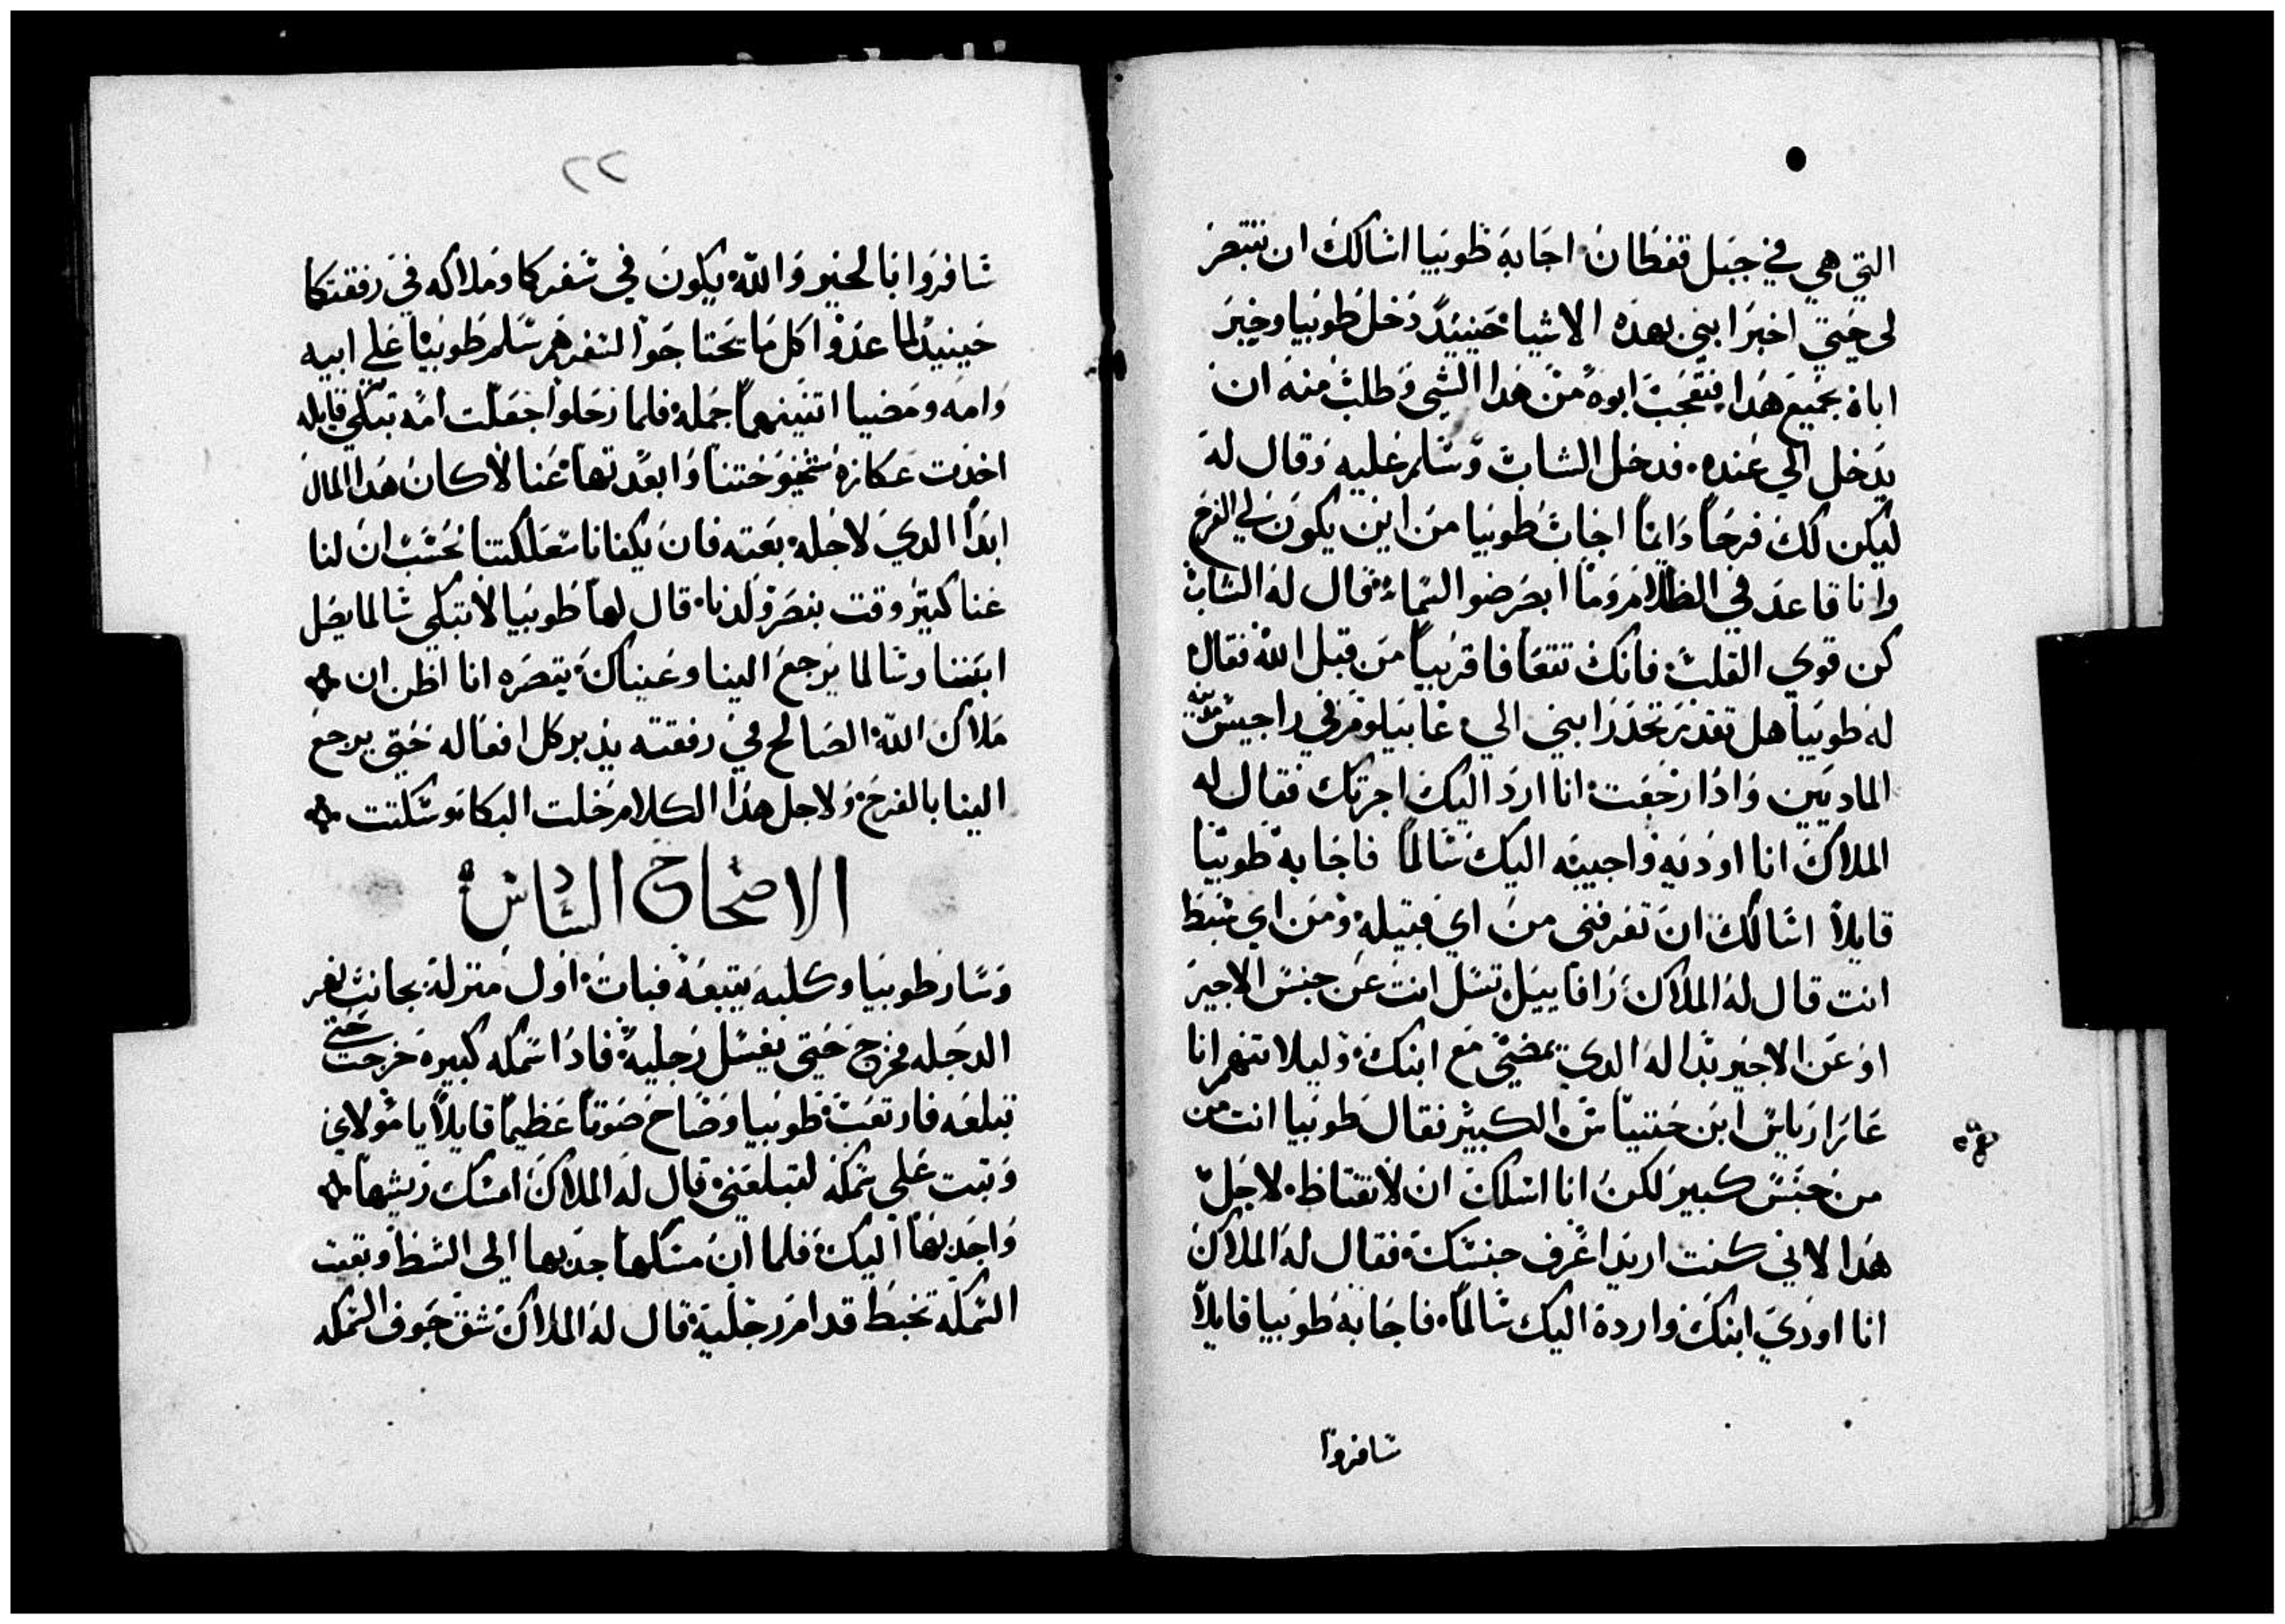 التي هي في جبل قفطان اجابه طوبيا اسالك ان تنتصر
لي حتي اخبر ابني بهده الاشيا حينيد دخل طوبيا وخبر
اباه بجميع هدا فتعجب ابوه من هدا الشي وطلب منه ان
يدخل الي عنده فدخل الشاب وسلم عليه وقال له
ليكن لك فرحاً دايماً اجاب طوبيا من اين يكون لي الفرح
وانا قاعد في الظلام وما ابصر ضو السماء فقال له الشاب
كن قوي القلب فانك تتعافا قريباً من قبل الله فقال
له طوبيا هل تقدر تخدر ابني الي غابيلوم في راجيس مدينه
الماديين وادا رجعت انا ارد اليك اجرتك فقال له
الملاك انا اوديه واجيبه اليك سالماً فاجابه طوبيا
قايلاً اسالك ان تعرفني من اي قبيله ومن اي سبط
انت قال له الملاك رافاييل تسل انت عن جنس الاجير
او عن الاجير بداله الدي يمضي مع ابنك وليلا تنهم انا
عازارياس ابن حننياس الكبير فقال طوبيا انت من
من جنس كبير لكن انا اسلك ان لا تغتاظ لاجل
هدا لاني كنت اريد اعرف جنسك فقال له الملاك
انا اودي ابنك وارده اليك سالماً فاجابه طوبيا قايلاً
سافروا
٢٢
سافروا بالخير والله يكون في سفركما وملاكه في رفقتكما
حينيد لما عدوا كل ما يحتاجوا لسفرهم سلم طوبيا علي ابيه
وامه ومضيا اتنينهما جمله فلما رحلوا جعلت امه تبكي قايله
اخدت عكازة شيخوختنا وابعدتها عنا لا كان هدا المال
ابداً الدي لاجله بعته فان يكفانا تعلكتنا نحسب ان لنا
غنا كبير وقت ننصر ولدنا قال لها طوبيا لا تبكي سالما يصل
ابننا وسالما يرجع الينا وعيناك يتصره انا اظن ان
ملاك الله الصالح في رفقته يدبر كل افعاله حتي يرجع
الينا بالفرح ولاجل هدا الكلام خلت البكا وسكتت
الاصحاح السادس
وسار طوبيا وكلبه يتبعه فبات اول منزله بجانب نهر
الدجله فخرج حتي يغسل رجليه فادا سمكه كبيره خرجت حتي
تبلعه فارتعب طوبيا وصاح صوتا عظيما قايلاً يا مولاي
وتبت علي سمكه لتبلعني قال له الملاك امسك ريشها
واجدبها اليك فلما ان مسكها جدبها الي الشط وبقت
السمكه تخبط قدام رجليه قال له الملاك شق جوف السمكه